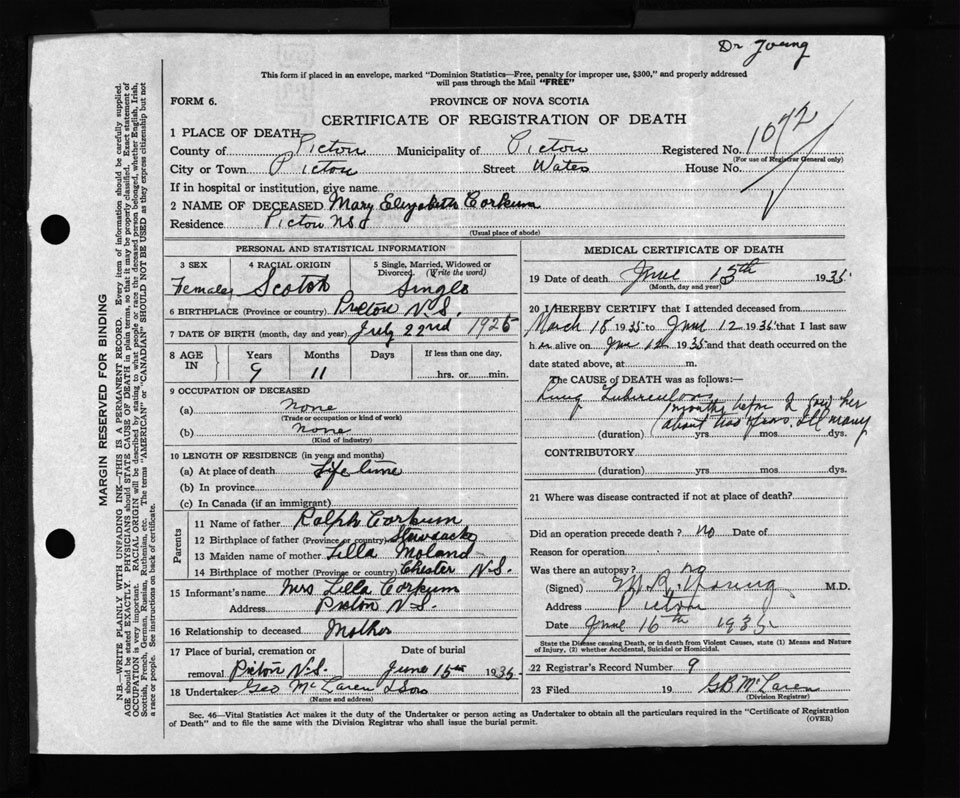 Dr Young
This form if placed in an envelope, marked "Dominion Statistics—Free, penalty for improper use, $300," and properly addressed
will pass through the Mail "FREE"
FORM 6.
PROVINCE OF NOVA SCOTIA
CERTIFICATE OF REGISTRATION OF DEATH
1 PLACE OF DEATH
County of Pictou Municipality of Pictou Registered No. 1072
(For use of Registrar General only)
City or Town Pictou Street Water House No.
If in hospital or institution, give name
2 NAME OF DECEASED Mary Elizabeth Corkum
Residence Pictou N.S.
(Usual place of abode)
PERSONAL AND STATISTICAL INFORMATION
3 SEX 4 RACIAL ORIGIN 5 Single, Married, Widowed or
Divorced (Write the word)
Female Scotch Single
6 BIRTHPLACE (Province or country) Pictou N.S.
7 DATE OF BIRTH (month, day and year) July 22nd 1925
8 AGE IN Years Months Days If less than one day,
9 11 hrs. or min.
9 OCCUPATION OF DECEASED
(a) None
(Trade or occupation or kind of work)
(b) None
(Kind of industry)
10 LENGTH OF RESIDENCE (in years and months)
(a) At place of death Life time
(b) In province
(c) In Canada (if an immigrant)
Parents
11 Name of father Ralph Corkum
12 Birthplace of father (Province or country)
13 Maiden name of mother Lilla Moland
14 Birthplace of mother (Province or Country) Chester N.S.
15 Informant's name Mrs Lilla Corkum
Address Pictou N.S.
16 Relationship to deceased Mother
17 Place of burial, cremation or Date of burial
removal Pictou N.S. June 15th 1935
18 Undertaker Geo McLaren & Son
(Name and address)
MEDICAL CERTIFICATE OF DEATH
19 Date of death June 15th 1935
(Month, day and year)
20 I HEREBY CERTIFY that I attended deceased from
March 18 1935 to June 12 1935 that I last saw
her alive on June 12 1935 and that death occurred on the
date stated above, at m.
The CAUSE OF DEATH was as follows:—
Lung Tuberculosis
months before I saw her
(duration) yrs. mos. dys.
about two years. Ill many
CONTRIBUTORY
(duration) yrs. mos. dys.
21 Where was disease contracted if not at place of death?
Did an operation precede death? no Date of
Reason for operation
Was there an autopsy? no
(Signed) Young M.D.
Address Pictou
Date June 16th 1935
State the Disease causing Death, or in death from Violent Causes, state (1) Means and Nature
of Injury, (2) whether Accidental, Suicidal or Homicidal.
22 Registrar's Record Number 9
23 Filed 19 G B McLaren
(Division Registrar)
Sec. 46—Vital Statistics Act makes it the duty of the Undertaker or person acting as Undertaker to obtain all the particulars required in the "Certificate of Registration
of Death" and to file the same with the Division Registrar who shall issue the burial permit. (OVER)
MARGIN RESERVED FOR BINDING
N.B.—WRITE PLAINLY WITH UNFADING INK—THIS IS A PERMANENT RECORD. Every item of information should be carefully supplied.
AGE should be stated EXACTLY. PHYSICIANS should STATE CAUSE OF DEATH in plain terms, so that it may be properly classified. Exact statement of
OCCUPATION is very important. RACIAL ORIGIN will be described by stating to what people or race the deceased person belonged, whether English, Irish,
Scottish, French, German, Russian, Ruthenian, etc. The terms "AMERICAN" or "CANADIAN" SHOULD NOT BE USED as they express citizenship but not
a race or people. See instructions on back of certificate.